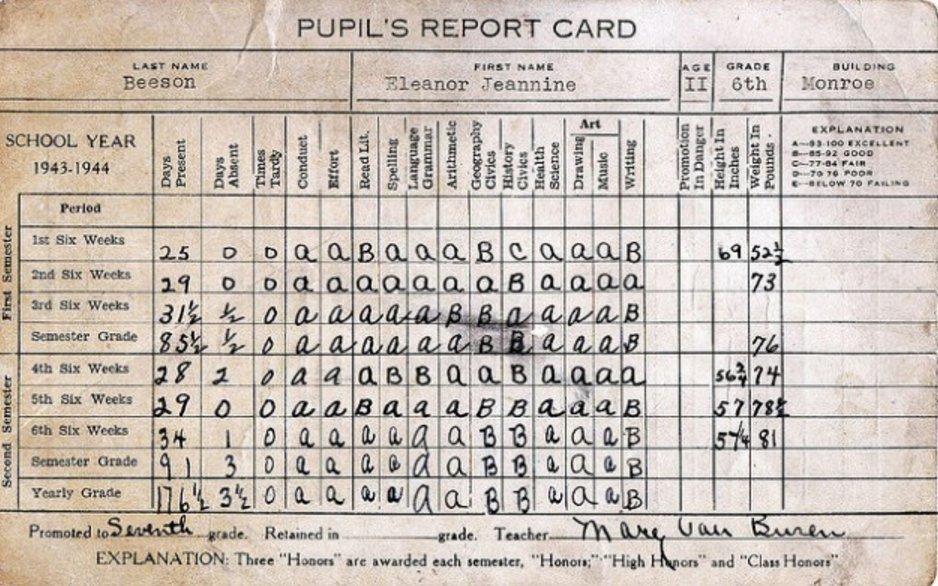 PUPIL'S REPORT CARD
LAST NAME FIRST NAME AGE GRADE BUILDING
Beeson Eleanor Jeannine II 6th Monroe
SCHOOL YEAR
1943-1944
Days Present Days Absent Times Tardy Conduct Effort Read Lit. Spelling Language Grammar Arithmetic Geography Civics History Civics Health Science Art Drawing Music Writing Promotion In Danger Height In Inches Weight In Pounds.
EXPLANATION
A—93-100 EXCELLENT
B—85-92 GOOD
C—77-84 FAIR
D—70 76 POOR
E—BELOW 70 FAILING
Period
First Semester
1st Six Weeks 25 0 0 a a B a a a B C a a a B 69 52½
2nd Six Weeks 29 0 0 a a a a a a a B a a a a 73
3rd Six Weeks 31½ ½ 0 a a a a a B B a a a a B
Semester Grade 85½ ½ 0 a a a a a a B B a a a B 76
Second Semester
4th Six Weeks 28 2 0 a a a B B a a B a a a a 56¾ 74
5th Six Weeks 29 0 0 a a B a a a B B a a a B 57 78½
6th Six Weeks 34 1 0 a a a a a a B B a a a B 57¼ 81
Semester Grade 91 3 0 a a a a a a B B a a a B
Yearly Grade 176½ 3½ 0 a a a a a a B B a a a B
Promoted to Seventh grade. Retained in grade. Teacher Mary Van Buren
EXPLANATION: Three "Honors" are awarded each semester, "Honors;" "High Honors" and "Class Honors"